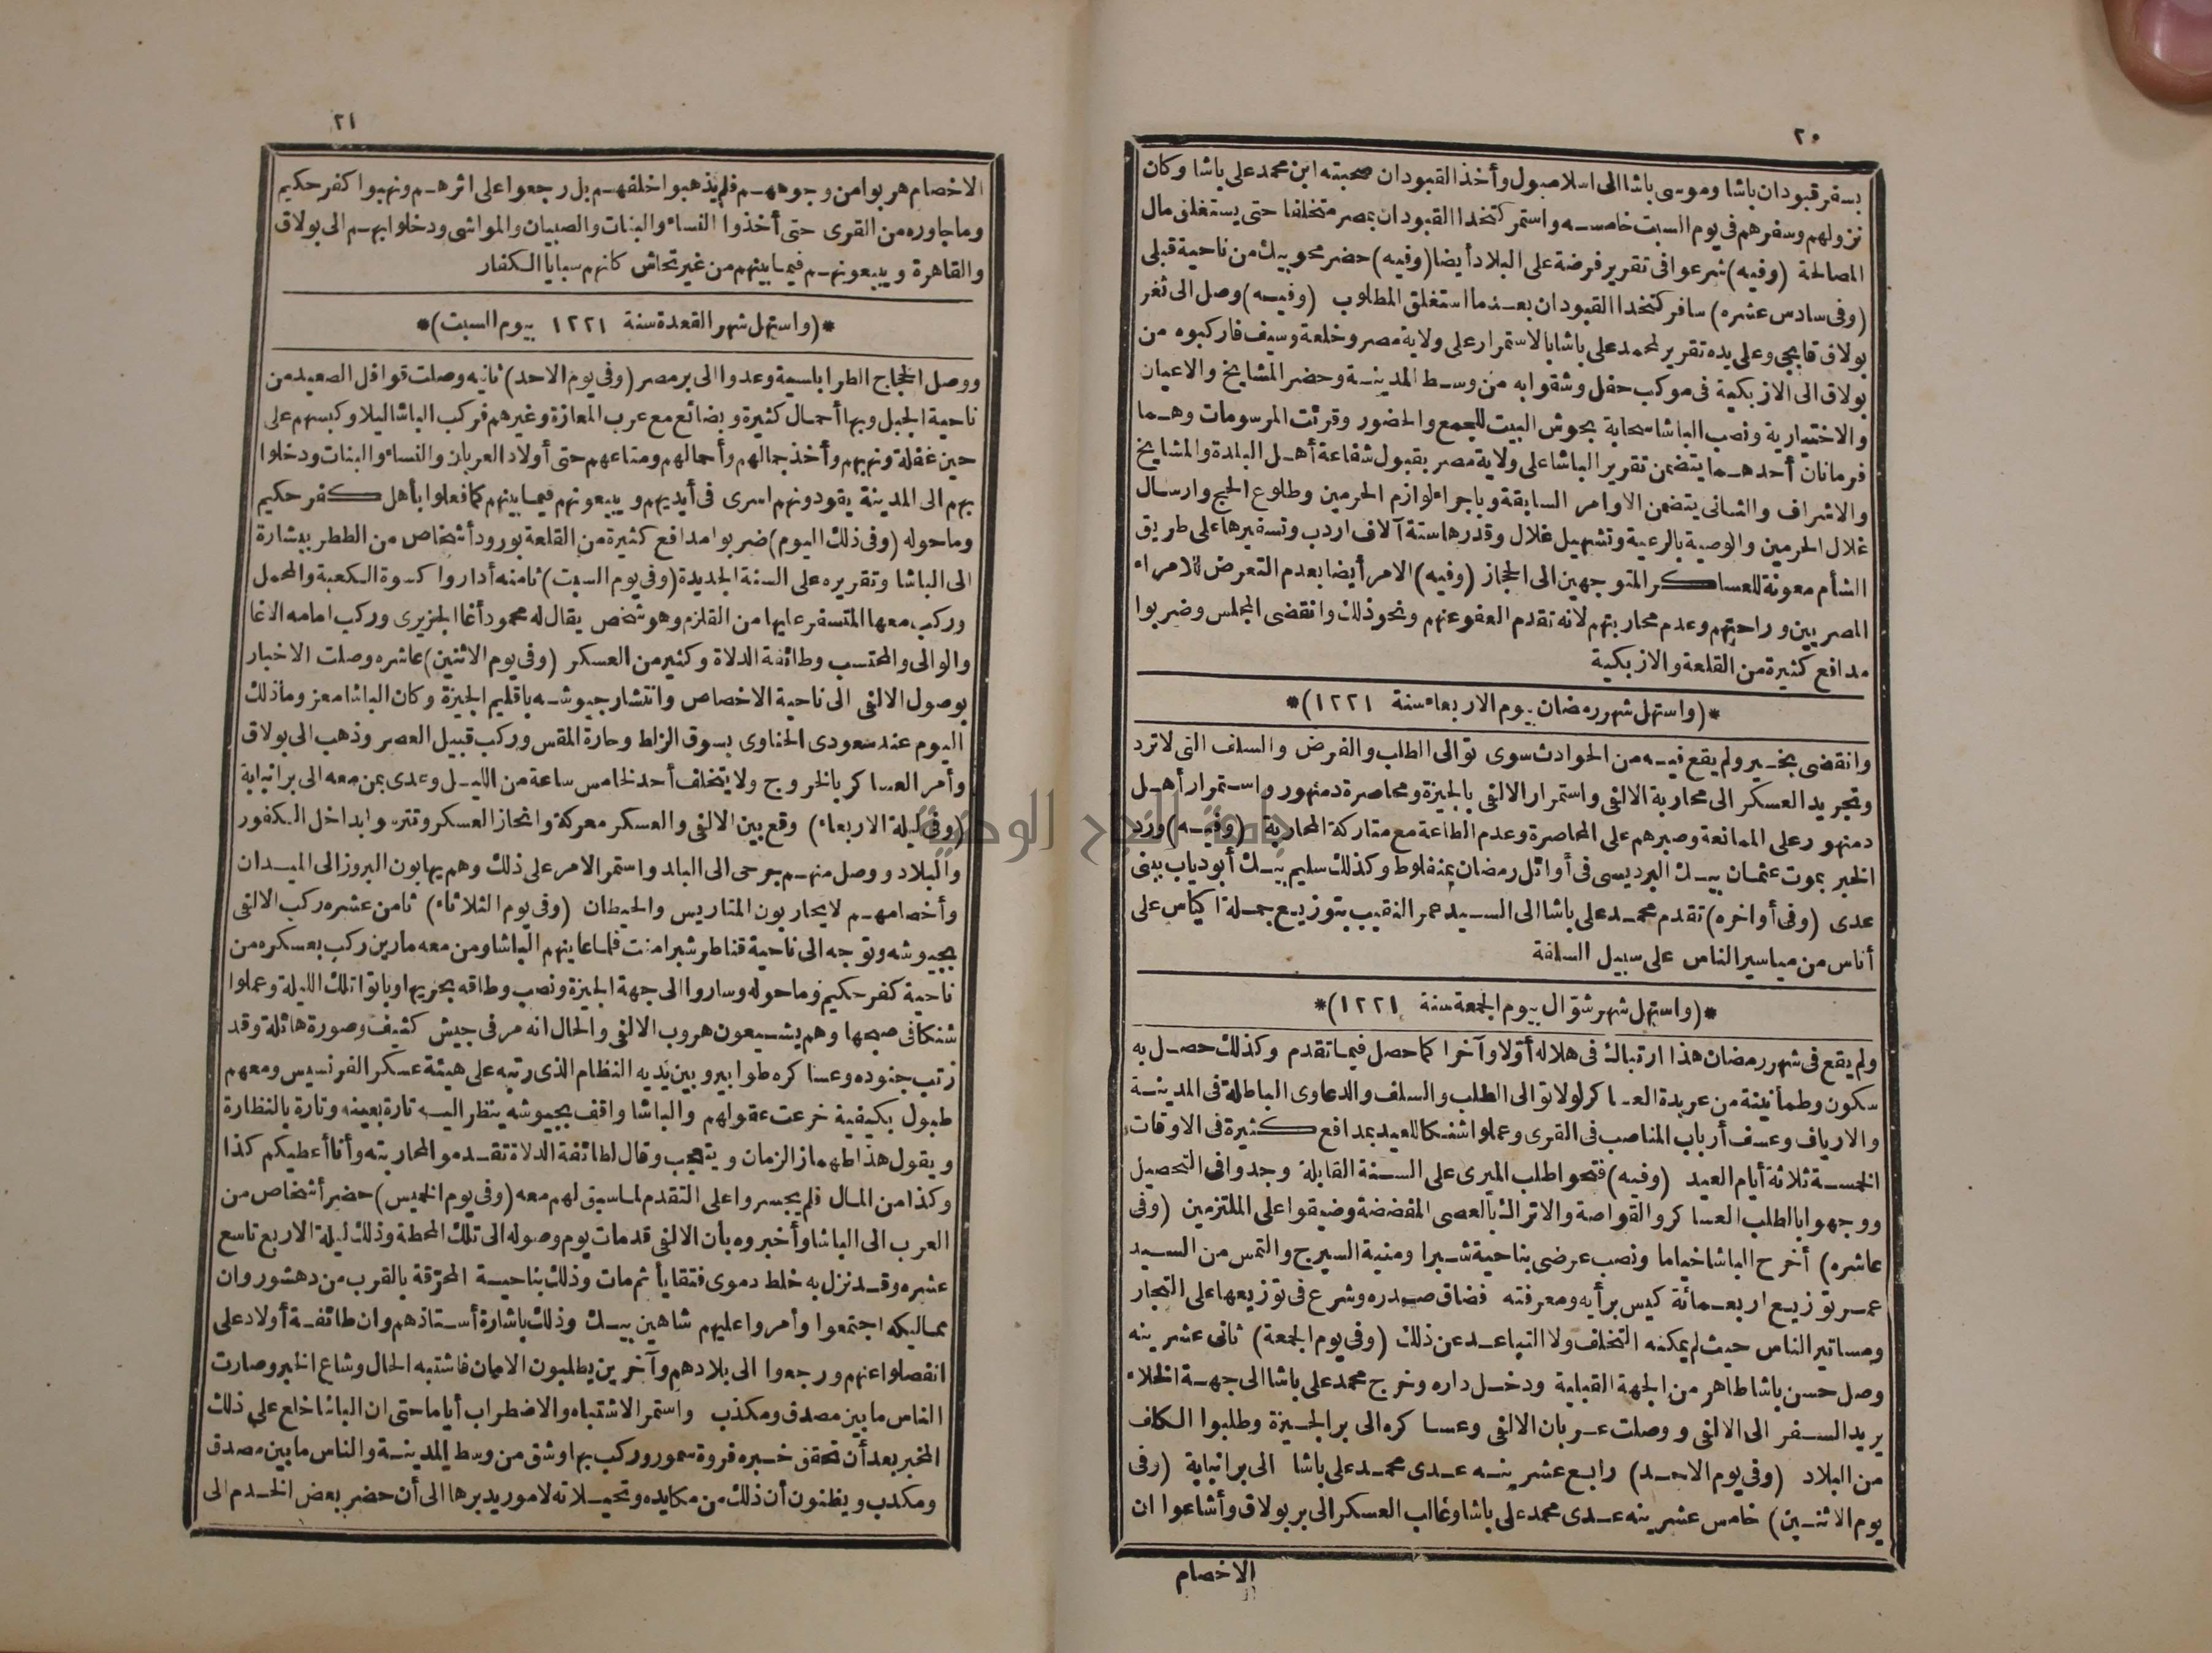 ٢٠
بسفر قبودان باشا وموسى باشا الى اسلامبول وأخذ القبودان صحبته ابن محمد على باشا وكان
نزولهم وسفرهم فى يوم السبت خامسه واستمر كتخدا القبودان بمصر متخلفا حتى يستغلق مال
المصالحة (وفيه) شرعوا فى تقرير فرضة على البلاد أيضا (وفيه) حضر محو بيك من ناحية قبلى
(وفى سادس عشره) سافر كتخدا القبودان بعدما استغلق المطلوب (وفيه) وصل الى ثغر
بولاق قابجى وعلى يده تقرير لمحمد على باشا بالاستمرار على ولاية مصر وخلعة وسيف فاركبوه من
بولاق الى الازبكية فى موكب حفل وشقوا به من وسط المدينة وحضر المشايخ والاعيان
والاختيارية ونصب الباشا سحابة بحوش البيت للجمع والحضور وقرئت المرسومات وهما
فرمانان أحدهما يتضمن تقرير الباشا على ولاية مصر بقبول شفاعة أهل البلدة والمشايخ
والاشراف والثانى يتضمن الاوامر السابقة وباجراء لوازم الحرمين وطلوع الحج وارسال
غلال الحرمين والوصية بالرعية وتشهيل غلال وقدرها ستة آلاف اردب وتسفيرها على طريق
الشأم معونة للعساكر المتوجهين الى الحجاز (وفيه) الامر أيضا بعدم التعرض للامراء
المصريين وراحتهم وعدم محاربتهم لانه تقدم العفو عنهم ونحو ذلك وانقضى المجلس وضربوا
مدافع كثيرة من القلعة والازبكية
*(واستهل شهر رمضان بيوم الاربعاء سنة ١٢٢١)*
وانقضى بخير ولم يقع فيه من الحوادث سوى توالى الطلب والفرض والسلف التى لا ترد
وتجريد العسكر الى محاربة الالفى واستمرار الالفى بالجيزة ومحاصرة دمنهور واستمرار أهل
دمنهور على الممانعة وصبرهم على المحاصرة وعدم الطاعة مع متاركة المحاربة (وفيه) ورد
الخبر بموت عثمان بيك البرديسى فى أوائل رمضان بمنفلوط وكذلك سليم بيك أبو دياب ببنى
عدى (وفى أواخره) تقدم محمد على باشا الى السيد عمر النقيب بتوزيع جملة اكياس على
أناس من مياسير الناس على سبيل السلفة
*(واستهل شهر شوّال بيوم الجمعة سنة ١٢٢١)*
ولم يقع فى شهر رمضان هذا ارتباك فى هلاله أوّلا وآخرا كما حصل فيما تقدم وكذلك حصل به
سكون وطمأنينة من عربدة العساكر لولا توالى الطلب والسلف والدعاوى الباطلة فى المدينة
والارياف وعسف أرباب المناصب فى القرى وعملوا شنكا للعيد بمدافع كثيرة فى الاوقات
الخمسة ثلاثة أيام العيد (وفيه) فتحوا طلب الميرى على السنة القابلة وجدوا فى التحصيل
ووجهوا بالطلب العساكر والقواصة والاتراك بالعصى المفضضة وضيقوا على الملتزمين (وفى
عاشره) أخرج الباشا خياما ونصب عرضى بناحية شبرا ومنية السيرج والتمس من السيد
عمر توزيع اربعمائة كيس برأيه ومعرفته فضاق صدره وشرع فى توزيعها على التجار
ومساتير الناس حيث لم يمكنه التخلف ولا التباعد عن ذلك (وفى يوم الجمعة) ثانى عشرينه
وصل حسن باشا طاهر من الجهة القبلية ودخل داره وخرج محمد على باشا الى جهة الخلاء
يريد السفر الى الالفى ووصلت عربان الالفى وعساكره الى بر الجيزة وطلبوا الكلف
من البلاد (وفى يوم الاحد) رابع عشرينه عدى محمد على باشا الى بر انبابة (وفى
يوم الاثنين) خامس عشرينه عدى محمد على باشا وغالب العسكر الى بر بولاق وأشاعوا ان
الاخصام
٢١
الاخصام هربوا من وجوههم فلم يذهبوا خلفهم بل رجعوا على اثرهم ونهبوا كفر حكيم
وما جاوره من القرى حتى أخذوا النساء والبنات والصبيان والمواشى ودخلوا بهم الى بولاق
والقاهرة ويبيعونهم فيما بينهم من غير تحاش كانهم سبايا الكفار
*(واستهل شهر القعدة سنة ١٢٢١ بيوم السبت)*
ووصل الحجاج الطرابلسية وعدوا الى بر مصر (وفى يوم الاحد) ثانيه وصلت قوافل الصعيد من
ناحية الجبل وبها أحمال كثيرة وبضائع مع عرب المعازة وغيرهم فركب الباشا ليلا وكبسهم على
حين غفلة ونهبهم وأخذ جمالهم وأحمالهم ومتاعهم حتى أولاد العربان والنساء والبنات ودخلوا
بهم الى المدينة يقودونهم اسرى فى أيديهم ويبيعونهم فيما بينهم كما فعلوا بأهل كفر حكيم
وما حوله (وفى ذلك اليوم) ضربوا مدافع كثيرة من القلعة بورود أشخاص من الططر ببشارة
الى الباشا وتقريره على السنة الجديدة (وفى يوم السبت) ثامنه أداروا كسوة الكعبة والمحمل
وركب معها المتسفر عليها من القلزم وهو شخص يقال له محمود أغا الجزيرى وركب امامه الاغا
والوالى والمحتسب وطائفة الدلاة وكثير من العسكر (وفى يوم الاثنين) عاشره وصلت الاخبار
بوصول الالفى الى ناحية الاخصاص وانتشار جيوشه باقليم الجيزة وكان الباشا معزوما ذلك
اليوم عند سعودى الحناوى بسوق الزلط وحارة المقس وركب قبيل العصر وذهب الى بولاق
وأمر العساكر بالخروج ولا يتخلف أحد لخامس ساعة من الليل وعدى بمن معه الى بر انبابة
(وفى ليلة الاربعاء) وقع بين الالفى والعسكر معركة وانحاز العسكر وتترسوا بداخل الكفور
والبلاد ووصل منهم جرحى الى البلد واستمر الامر على ذلك وهم يهابون البروز الى الميدان
وأخصامهم لا يحاربون المتاريس والحيطان (وفى يوم الثلاثاء) ثامن عشره ركب الالفى
بجيوشه وتوجه الى ناحية قناطر شبرامنت فلما عاينهم الباشا ومن معه مارين ركب بعسكره من
ناحية كفر حكيم وما حوله وساروا الى جهة الجيزة ونصب وطاقه بحريها وباتوا تلك الليلة وعملوا
شنكا فى صبحها وهم يشيعون هروب الالفى والحال انه مر فى جيش كثيف وصورة هائلة وقد
رتب جنوده وعساكره طوابير وبين يديه النظام الذى رتبه على هيئة عسكر الفرنسيس ومعهم
طبول بكيفية خرعت عقولهم والباشا واقف بجيوشه ينظر اليه تارة بعينه وتارة بالنظارة
ويقول هذا طهماز الزمان ويتعجب وقال لطائفة الدلاة تقدموا لمحاربته وأنا أعطيكم كذا
وكذا من المال فلم يجسروا على التقدم لما سبق لهم معه (وفى يوم الخميس) حضر أشخاص من
العرب الى الباشا وأخبروه بأن الالفى قد مات يوم وصوله الى تلك المحطة وذلك ليلة الاربع تاسع
عشره وقد نزل به خلط دموى فتقايأ ثم مات وذلك بناحية المحرّقة بالقرب من دهشور وان
مماليكه اجتمعوا وأمروا عليهم شاهين بيك وذلك باشارة أستاذهم وان طائفة أولاد على
انفصلوا عنهم ورجعوا الى بلادهم وآخرين يطلبون الامان فاشتبه الحال وشاع الخبر وصارت
الناس ما بين مصدق ومكذب واستمر الاشتباه والاضطراب أياما حتى ان الباشا خلع على ذلك
المخبر بعد أن تحقق خبره فروة سمور وركب بها وشق من وسط المدينة والناس ما بين مصدق
ومكذب ويظنون أن ذلك من مكايده وتحيلاته لامور يدبرها الى أن حضر بعض الخدم الى
جامعة النجاح الوطنية